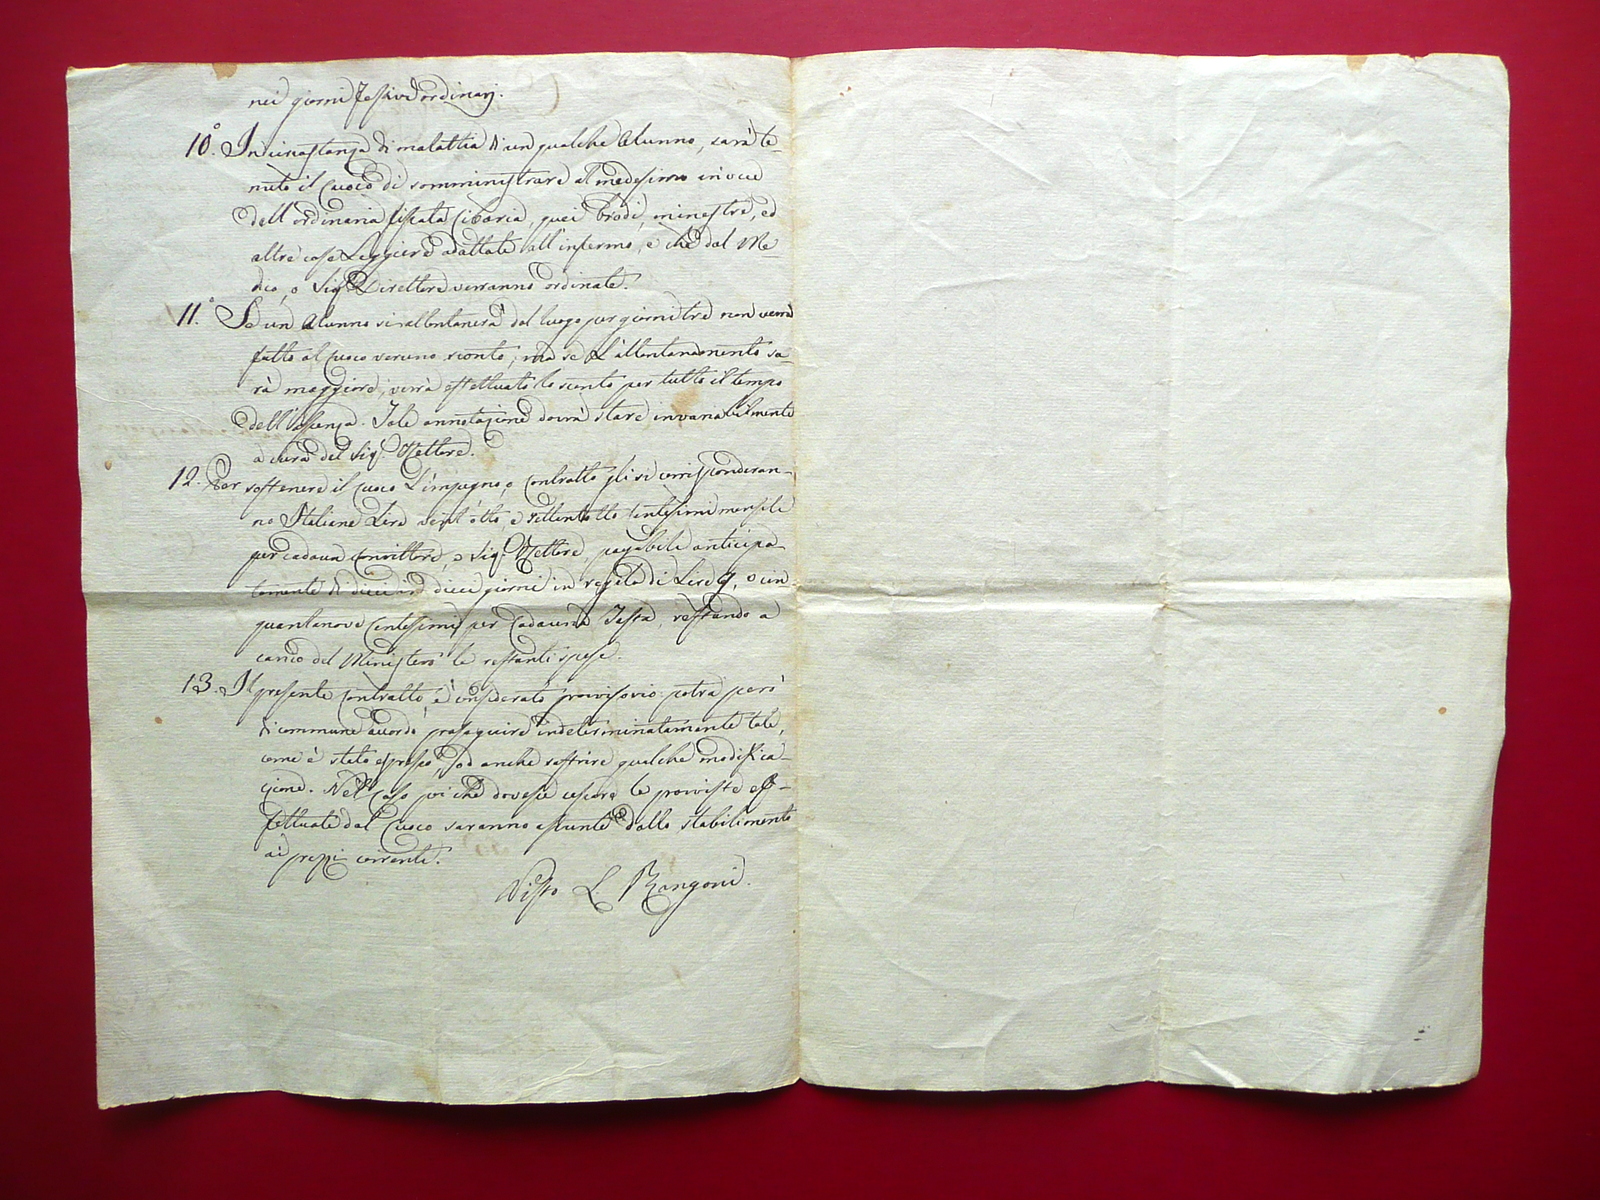 nei giorni Festivi ordinarj.
10.° In circostanza di malattia di un qualche Alunno, sarà te-
nuto il Cuoco di somministrare al medesimo in vece
dell'ordinaria fissata Cibaria, quei brodi, minestre, ed
altre cose Leggiere adattate all'infermo, e che dal Me-
dico, o Sig.r Direttore verranno ordinate.
11.° Se un Alunno si allontanerà dal luogo per giorni tre non verrà
fatto al Cuoco veruno sconto; ma se L'allontanamento sa-
rà maggiore, verrà effettuato lo sconto per tutto il tempo
dell'assenza. Tale annotazione dovrà stare invariabilmente
a cura del Sig.r Rettore.
12. Per sostenere il Cuoco L'impegno, o Contratto gli si corrisponderan-
no Italiane Lire vent'otto, e settentotto Centesimi mensili
per cadaun Convittore, e Sig.r Rettore, pagabili anticipa-
tamente di dieci in dieci giorni in regola di Lire 9, o cin-
quantanove Centesimi per Cadauna Testa, restando a
carico del Ministero le restanti spese.
13. Il presente Contratto è considerato provisorio: potrà però
di commune accordo proseguire indeterminatamente tale,
come è stato espresso, od anche soffrire qualche modifica-
zione. Nel Caso poi che dovesse cessare le proviste ef-
fettuate dal Cuoco saranno assunte dallo stabilimento
ai prezzi correnti.
Visto L. Rangoni.